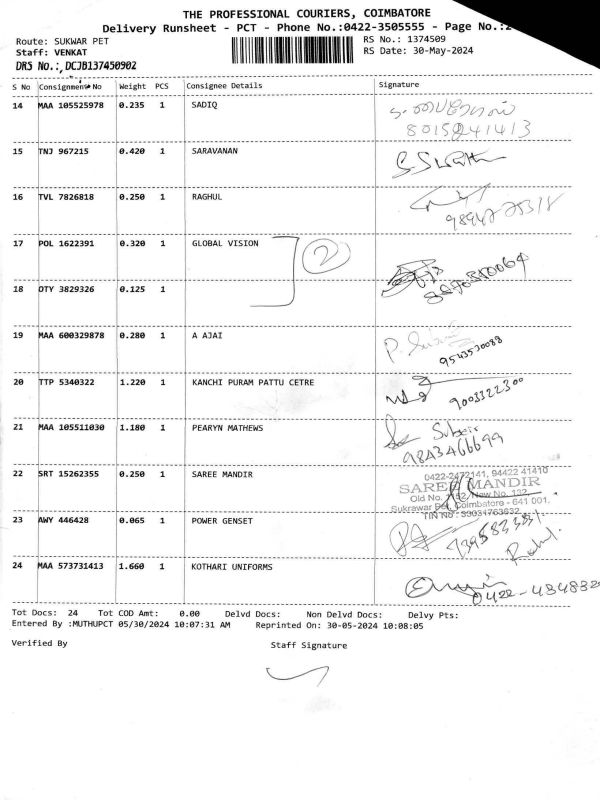 THE PROFESSIONAL COURIERS, COIMBATORE
Delivery Runsheet - PCT - Phone No.:0422-3505555 - Page No.:2
Route: SUKWAR PET
RS No.: 1374509
Staff: VENKAT
RS Date: 30-May-2024
DRS No.: DCJB137450902
S No Consignment No Weight PCS Consignee Details Signature
14 MAA 105525978 0.235 1 SADIQ
8015241413
15 TNJ 967215 0.420 1 SARAVANAN
16 TVL 7826818 0.250 1 RAGHUL
17 POL 1622391 0.320 1 GLOBAL VISION
2
18 OTY 3829326 0.125 1
19 MAA 600329878 0.280 1 A AJAI
9543530088
20 TTP 5340322 1.220 1 KANCHI PURAM PATTU CETRE
9003322300
21 MAA 105511030 1.180 1 PEARYN MATHEWS
9843466699
22 SRT 15262355 0.250 1 SAREE MANDIR
0422-2472141, 94422 41410
SAREE MANDIR
Old No. New No. 132,
Sukrawar Pet, Coimbatore - 641 001.
TIN No : 33031763632
23 AWY 446428 0.065 1 POWER GENSET
24 MAA 573731413 1.660 1 KOTHARI UNIFORMS
0422-434832
Tot Docs: 24 Tot COD Amt: 0.00 Delvd Docs: Non Delvd Docs: Delvy Pts:
Entered By :MUTHUPCT 05/30/2024 10:07:31 AM Reprinted On: 30-05-2024 10:08:05
Verified By Staff Signature